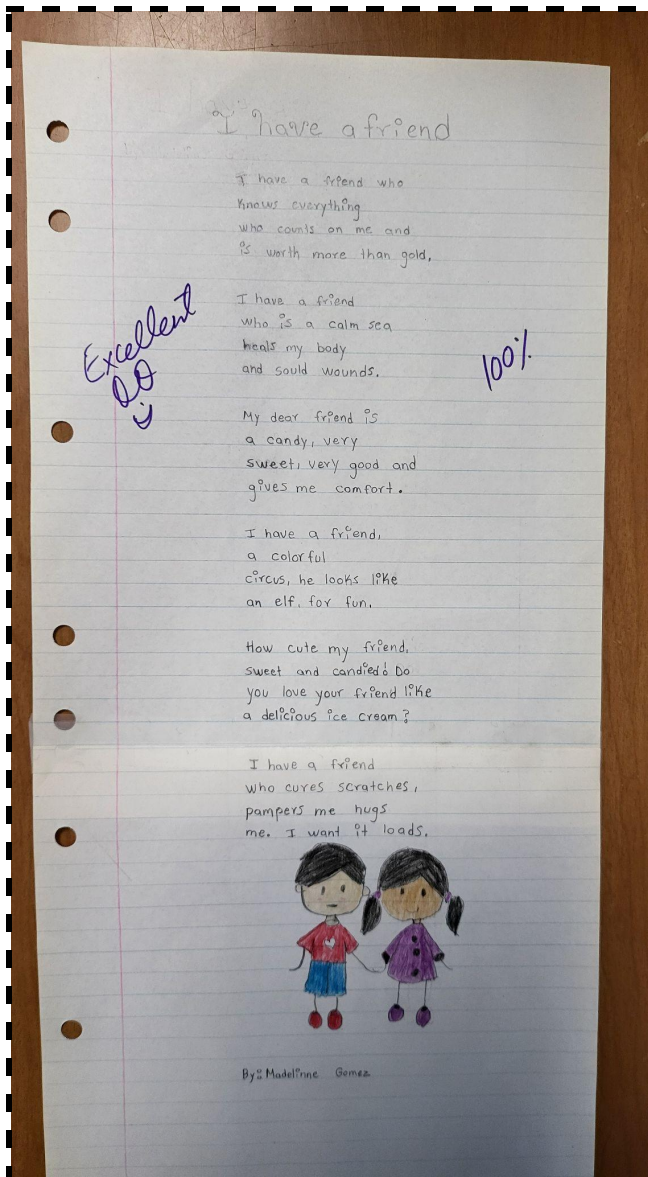 I have a friend
I have a friend who
Knows everything
who counts on me and
is worth more than gold.
I have a friend
who is a calm sea
heals my body
and sould wounds.
Excellent
100%
My dear friend is
a candy, very
sweet, very good and
gives me comfort.
I have a friend,
a colorful
circus, he looks like
an elf. for fun.
How cute my friend,
sweet and candied! Do
you love your friend like
a delicious ice cream?
I have a friend
who cures scratches,
pampers me hugs
me. I want it loads.
By: Madelinne Gomez